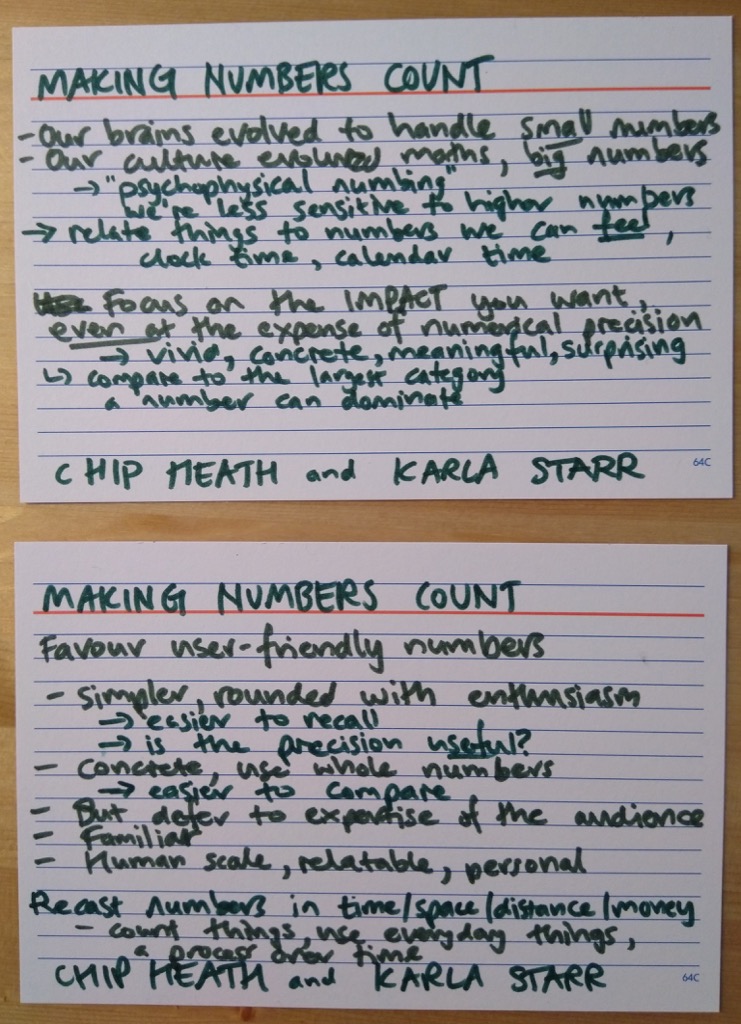 MAKING NUMBERS COUNT
- Our brains evolved to handle small numbers
- Our culture evolved maths, big numbers
→ "psychophysical numbing"
we're less sensitive to higher numbers
→ relate things to numbers we can feel,
clock time, calendar time
Focus on the IMPACT you want,
even at the expense of numerical precision
→ vivid, concrete, meaningful, surprising
↳ compare to the largest category
a number can dominate
CHIP HEATH and KARLA STARR
64C
MAKING NUMBERS COUNT
Favour user-friendly numbers
- Simpler, rounded with enthusiasm
→ easier to recall
→ is the precision useful?
- Concrete, use whole numbers
→ easier to compare
- But defer to expertise of the audience
- Familiar
- Human scale, relatable, personal
Recast numbers in time/space/distance/money
- count things, use everyday things,
a process over time
CHIP HEATH and KARLA STARR
64C